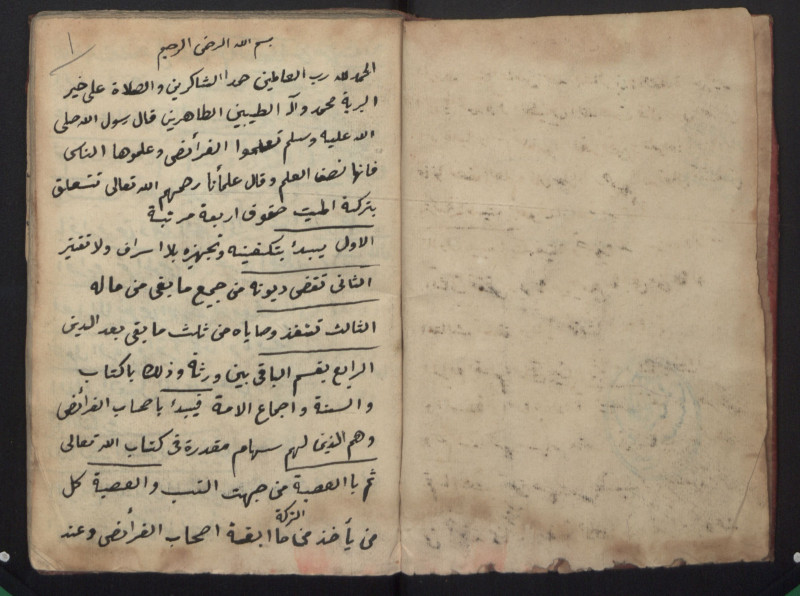 ١
بسم الله الرحمن الرحيم
الحمد لله رب العالمين حمد الشاكرين والصلاة على خير
البرية محمد وآله الطيبين الطاهرين قال رسول الله صلى
الله عليه وسلم تعلموا الفرائض وعلموها الناس
فانها نصف العلم وقال علمأنا رحمهم الله تعالى تتعلق
بتركة الميت حقوق اربعة مرتبة
الاول يبدأ بتكفينه وتجهيزه بلا اسراف ولا تقتير
الثانى تقضى ديونه من جميع ما بقى من ماله
الثالث تنفذ وصاياه من ثلث ما بقى بعد الدين
الرابع يقسم الباقى بين ورثة وذلك باكتاب
والسنة واجماع الامة فيبدأ باصحاب الفرائض
وهم الذين لهم سهام مقدرة فى كتاب الله تعالى
ثم بالعصبة من جهت النسب والعصبة كل
من يأخذ من ما ابقته اصحاب الفرائض وعند
التركة